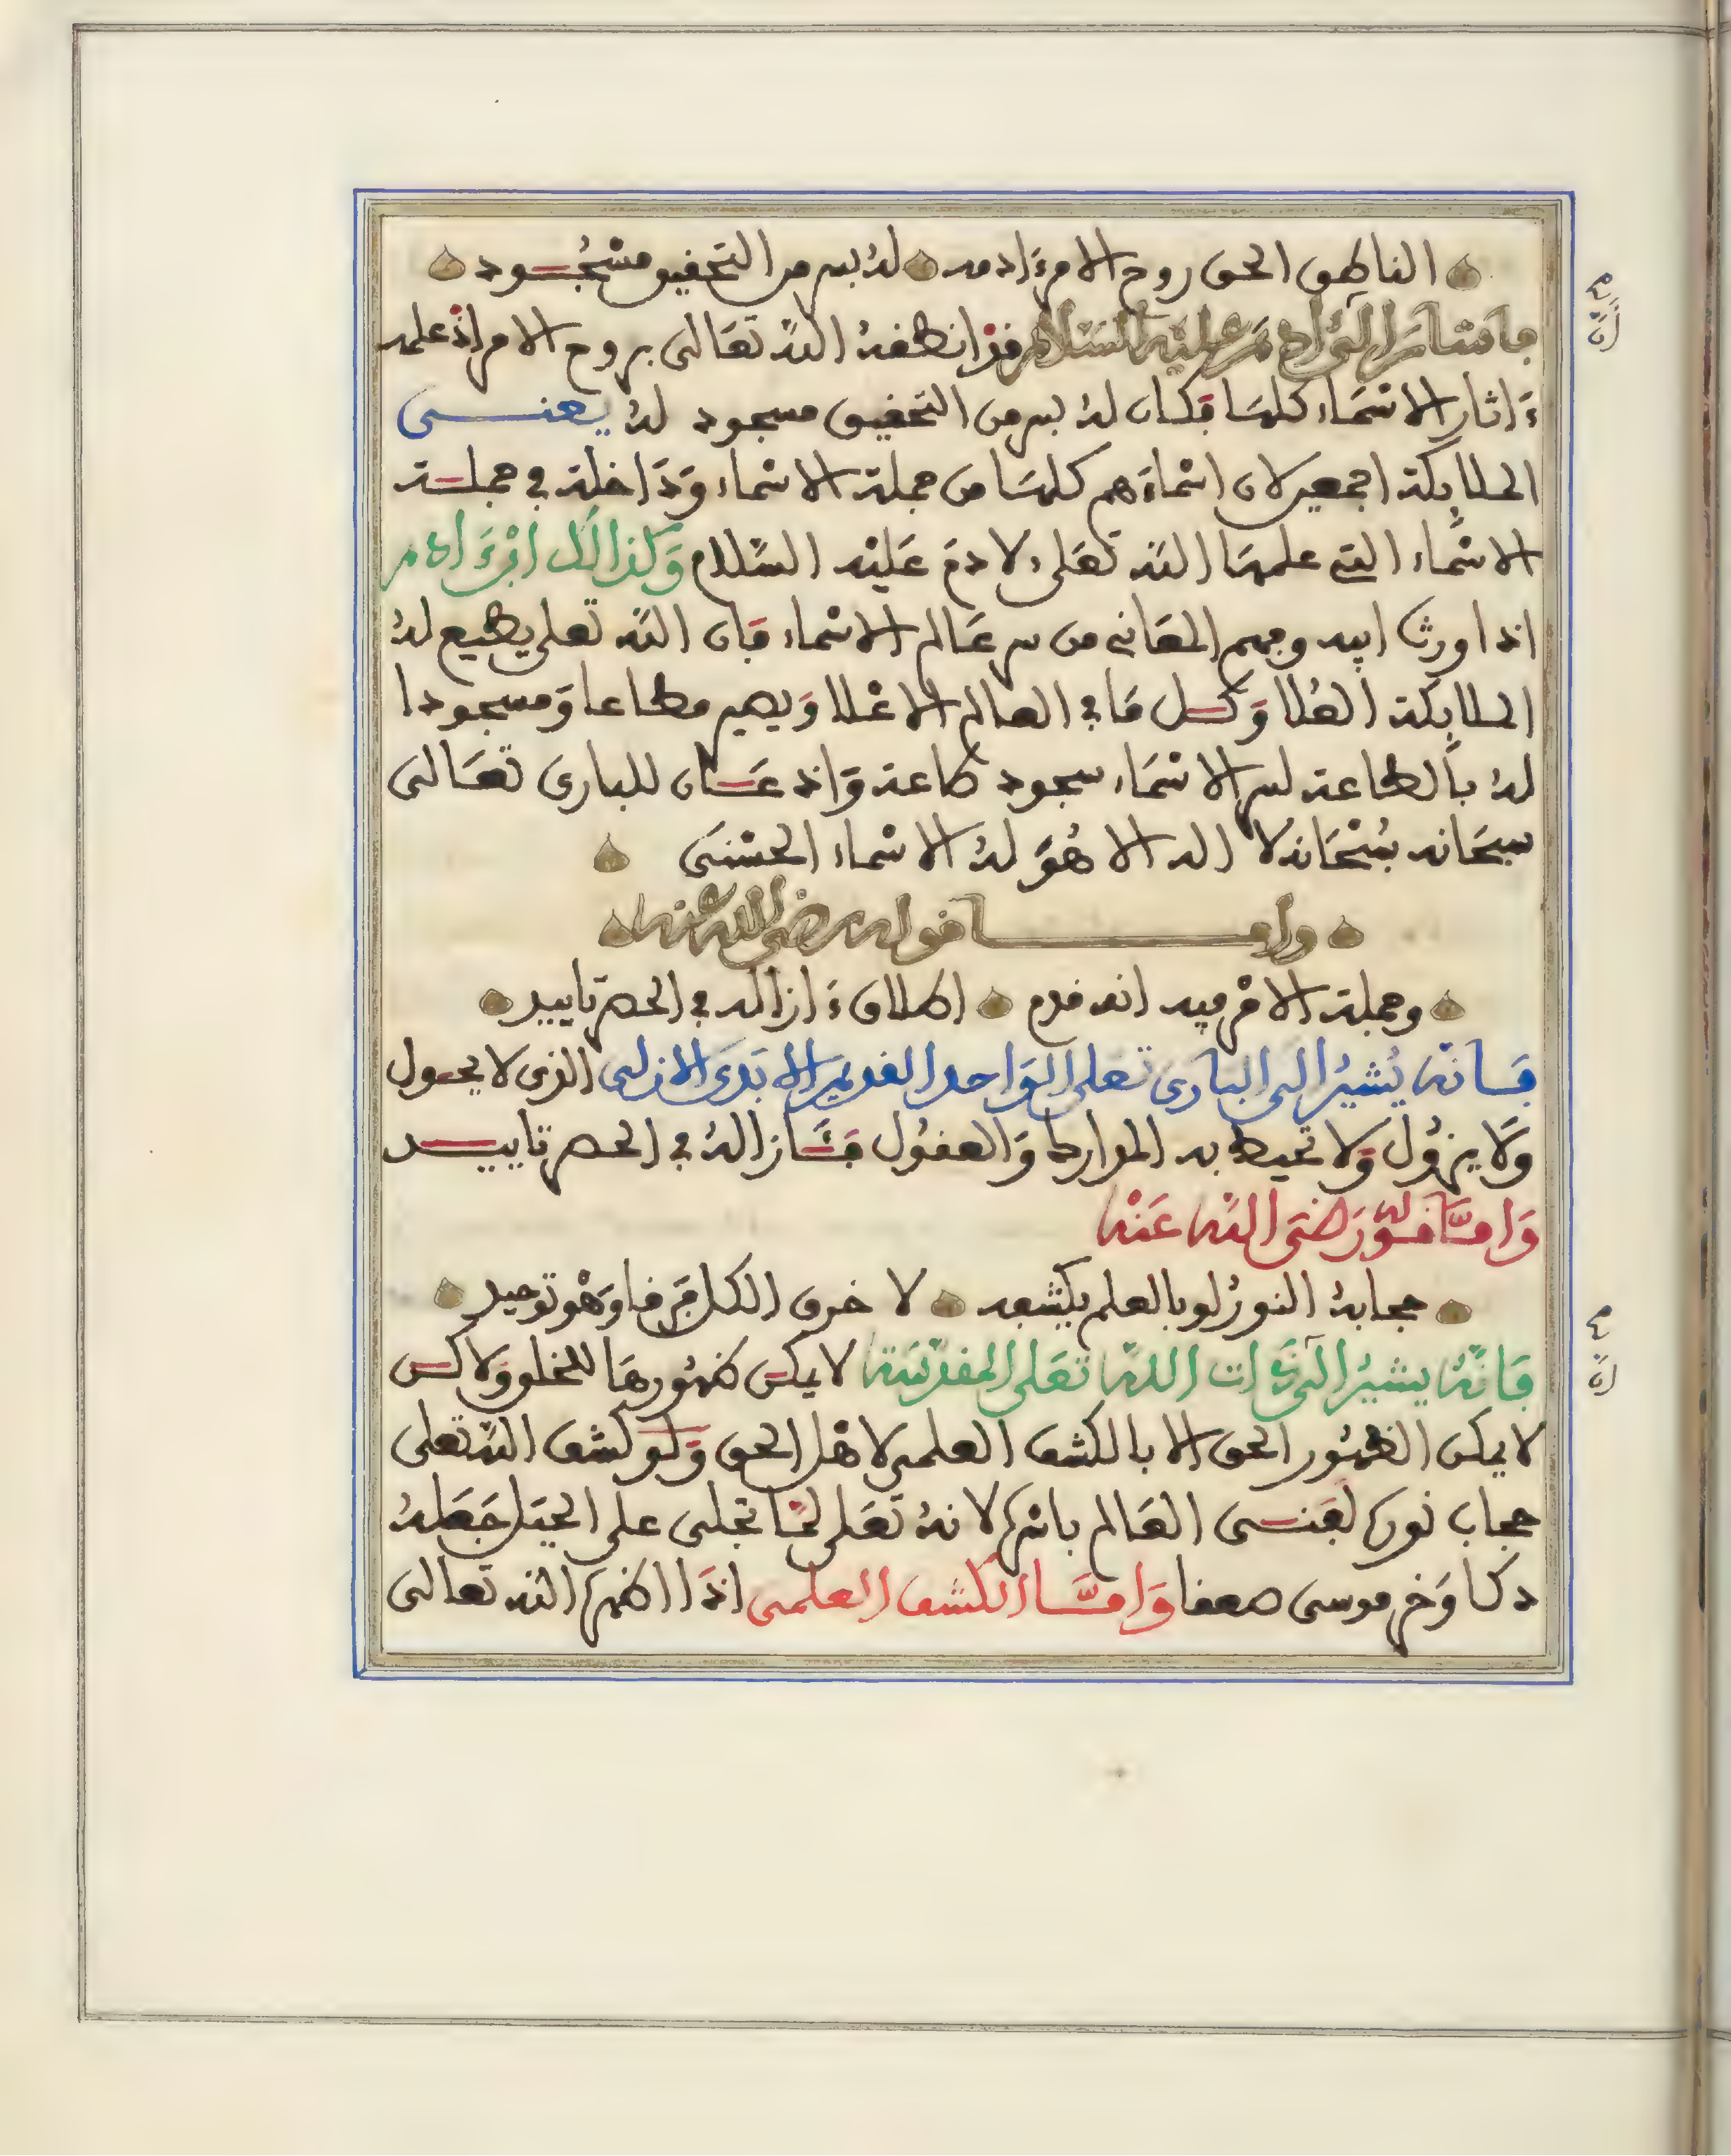 الناطق الحق روح الامر ءادمه له بسر من التحقيق مسجود
فاشار الى ءادم عليه السلام قد انطقه الله تعالى بروح الامر اذ علمه
ءاثار الاسماء كلها فكان له بسر من التحقيق مسجود له يعنى
الملايكة اجمعين لان اسماءهم كلها من جملة الاسماء وداخلة في جملة
الاسماء التي علمها الله تعلى لادم عليه السلام وكذالك ابن ءادم
اذا ورث ابيه وفهم المعاني من سر عالم الاسماء فان الله تعلى يطيع له
الملايكة العلا وكل ما في العالم الاعلا ويصير مطاعا ومسجودا
له بالطاعة لسر الاسماء سجود طاعة واذعان للبارى تعالى
سبحانه سبحانه لا اله الا هو له الاسماء الحسنى
واما قوله رضى الله عنه
وجملة الامر فيه انه قدم اطلاق ءازاله في الحصر تاييد
فانه يشير الى البارى تعلى الواحد القديم الابدى الازلى الذى لا يحول
ولا يزول ولا تحيط به المدارك والعقول فئازاله في الحصر تاييد
واما قوله رضى الله عنه
حجابه النور لو بالعلم يكشفه لا خرق الكل من فا وهو توحيد
فانه يشير الى ذات الله تعلى المقدسة لا يمكن ظهورها للخلق ولاكن
لا يمكن الظهور الحق الا بالكشف العلمى لاهل الحق ولو كشف الله تعلى
حجاب نوره لفنى العالم باسره لانه تعلى لما تجلى على الجبل جعله
دكا وخر موسى صعقا واما الكشف العلمى اذا اظهره الله تعالى